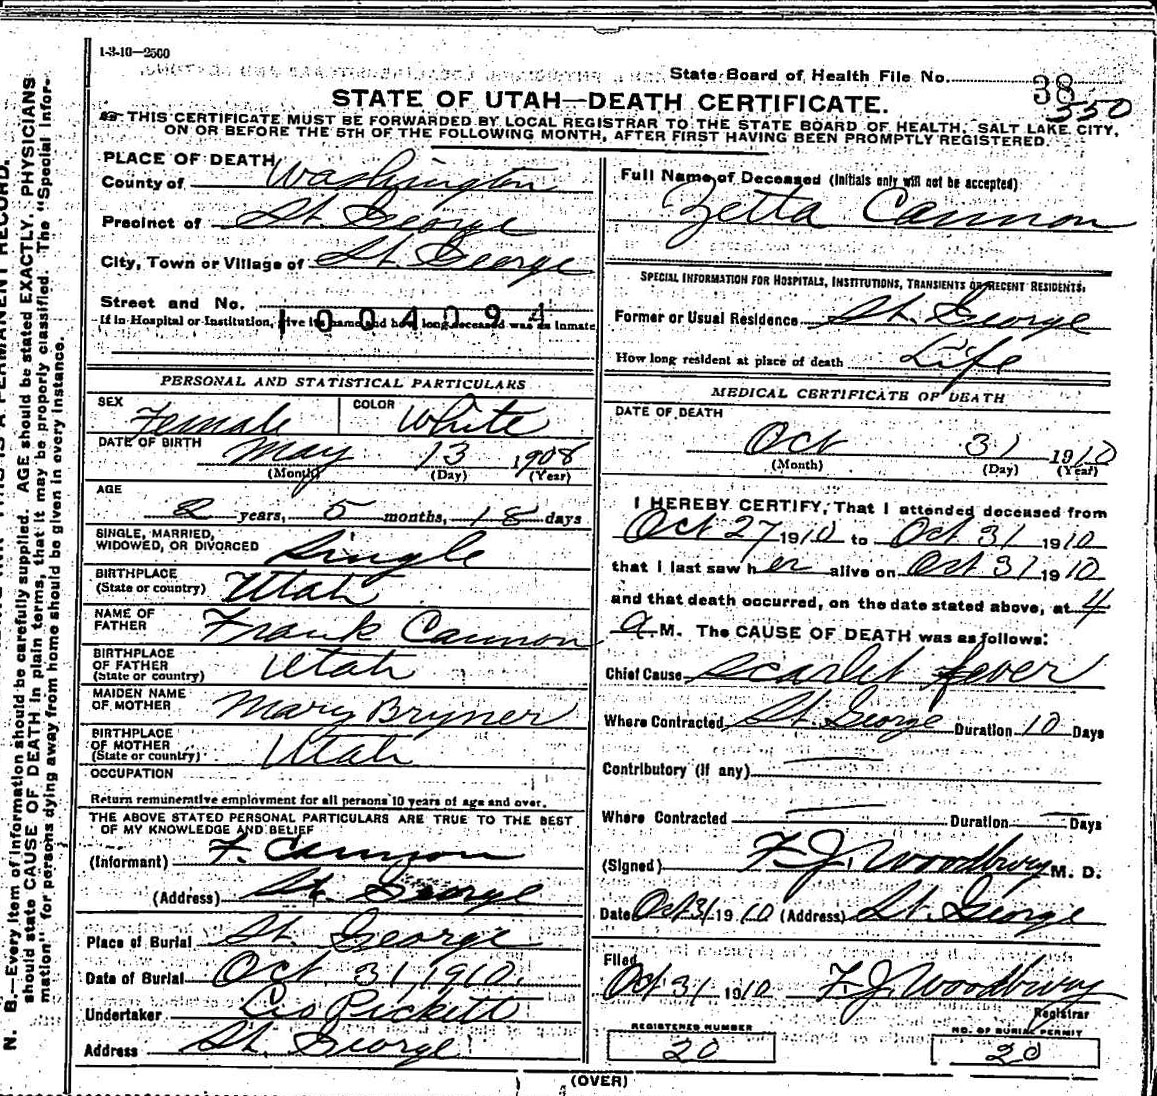 1-3-10—2500
State Board of Health File No. 38
550
STATE OF UTAH—DEATH CERTIFICATE.
THIS CERTIFICATE MUST BE FORWARDED BY LOCAL REGISTRAR TO THE STATE BOARD OF HEALTH, SALT LAKE CITY,
ON OR BEFORE THE 5TH OF THE FOLLOWING MONTH, AFTER FIRST HAVING BEEN PROMPTLY REGISTERED.
PLACE OF DEATH
County of Washington
Precinct of St. George
City, Town or Village of St. George
Street and No.
1004094
If in Hospital or Institution, give its name and how long deceased was an Inmate
PERSONAL AND STATISTICAL PARTICULARS
SEX Female COLOR White
DATE OF BIRTH May 13 1908
(Month) (Day) (Year)
AGE
2 years, 5 months, 18 days
SINGLE, MARRIED,
WIDOWED, OR DIVORCED Single
BIRTHPLACE
(State or country) Utah
NAME OF
FATHER Frank Cannon
BIRTHPLACE
OF FATHER Utah
(State or country)
MAIDEN NAME
OF MOTHER Mary Bryner
BIRTHPLACE
OF MOTHER Utah
(State or country)
OCCUPATION
Return remunerative employment for all persons 10 years of age and over.
THE ABOVE STATED PERSONAL PARTICULARS ARE TRUE TO THE BEST
OF MY KNOWLEDGE AND BELIEF
(Informant) F. Cannon
(Address) St. George
Place of Burial St. George
Date of Burial Oct 31, 1910.
Undertaker Pickett
Address St. George
Full Name of Deceased (Initials only will not be accepted)
Zetta Cannon
SPECIAL INFORMATION FOR HOSPITALS, INSTITUTIONS, TRANSIENTS OR RECENT RESIDENTS.
Former or Usual Residence St. George
How long resident at place of death Life
MEDICAL CERTIFICATE OF DEATH
DATE OF DEATH
Oct 31 1910
(Month) (Day) (Year)
I HEREBY CERTIFY, That I attended deceased from
Oct 27 1910 to Oct 31 1910
that I last saw her alive on Oct 31 1910
and that death occurred, on the date stated above, at 4
a M. The CAUSE OF DEATH was as follows:
Chief Cause Scarlet fever
Where Contracted St. George Duration 10 Days
Contributory (if any)
Where Contracted Duration Days
(Signed) F. J. Woodbury M. D.
Date Oct 31 1910 (Address) St. George
Filed
Oct 31 1910 F. J. Woodbury
Registrar
REGISTERED NUMBER
20
NO. OF BURIAL PERMIT
20
(OVER)
N. B.—Every item of information should be carefully supplied. AGE should be stated EXACTLY. PHYSICIANS
should state CAUSE OF DEATH in plain terms, that it may be properly classified. The "Special Infor-
mation" for persons dying away from home should be given in every instance.
THIS IS A PERMANENT RECORD.